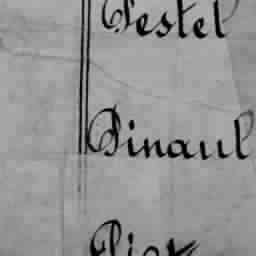 Pestel
Pinaul